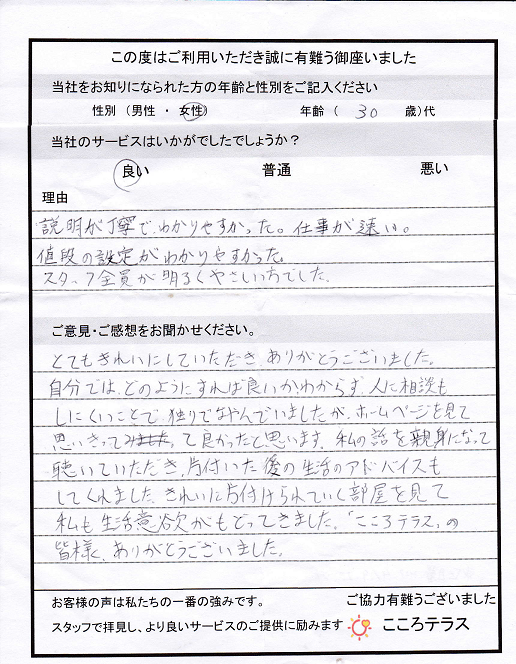 この度はご利用いただき誠に有難う御座いました
当社をお知りになられた方の年齢と性別をご記入ください
性別 (男性 ・ 女性) 年齢 ( 30 歳)代
当社のサービスはいかがでしたでしょうか?
良い 普通 悪い
理由
説明が丁寧で、わかりやすかった。仕事が速い。
値段の設定がわかりやすかった。
スタッフ全員が明るくやさしい方でした。
ご意見・ご感想をお聞かせください。
とてもきれいにしていただき、ありがとうございました。
自分では、どのようにすれば良いかわからず、人に相談も
しにくいことで、独りでなやんでいましたが、ホームページを見て
思いきって って良かったと思います。私の話を親身になって
聴いていただき、片付いた後の生活のアドバイスも
してくれました。きれいに片付けられていく部屋を見て
私も生活意欲がもどってきました。「こころテラス」の
皆様、ありがとうございました。
お客様の声は私たちの一番の強みです。 ご協力有難うございました
スタッフで拝見し、より良いサービスのご提供に励みます こころテラス